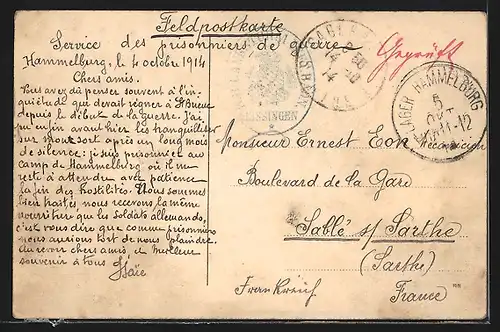 Feldpostkarte
Service des prisonniers de guerre
Geprüft
Hammelburg, le 4 octobre 1914
Chers amis.
Vous avez dû penser souvent à l'in-
quiétude que devait régner à St Breuc
depuis le début de la guerre. J'ai
pu enfin avant hier les tranquilliser
sur mon sort après un long mois
de silence: je suis prisonnier au
camp de Hammelburg où il me
reste à attendre avec patience
la fin des hostilités. Nous sommes
bien traités nous recevons la même
nourriture que les soldats allemands,
c'est vous dire que comme prisonniers
nous aurions tort de nous plaindre.
Au revoir chers amis, et meilleur
souvenir à tous
KISSINGEN
LAGER HAMMELBURG
5
OKT
11-12
Monsieur Ernest Eon Mécanicien
Boulevard de la Gare
Sablé s/ Sarthe
(Sarthe)
Frankreich
France